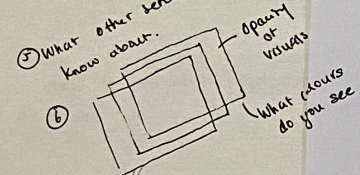 ⑤ What other sen
know about.
⑥
opacity
of
visuals
What colours
do you see